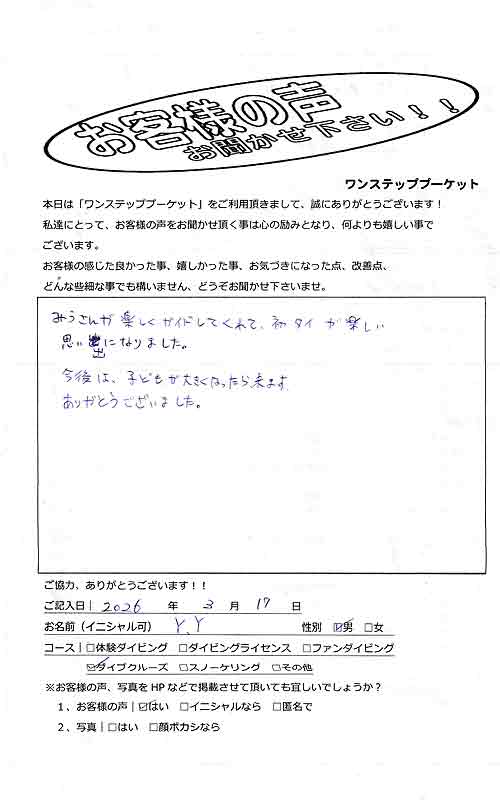 お客様の声
お聞かせ下さい！！
ワンステッププーケット
本日は「ワンステッププーケット」をご利用頂きまして、誠にありがとうございます！
私達にとって、お客様の声をお聞かせ頂く事は心の励みとなり、何よりも嬉しい事で
ございます。
お客様の感じた良かった事、嬉しかった事、お気づきになった点、改善点、
どんな些細な事でも構いません、どうぞお聞かせ下さいませ。
みうさんが楽しくガイドしてくれて、初タイが楽しい
思い出になりました。
今後は、子どもが大きくなったら来ます
ありがとうございました。
ご協力、ありがとうございます！！
ご記入日｜2026 年 3 月 17 日
お名前（イニシャル可） Y.Y 性別 ☑男 □女
コース｜□体験ダイビング □ダイビングライセンス □ファンダイビング
☑ダイブクルーズ □スノーケリング □その他
※お客様の声、写真を HP などで掲載させて頂いても宜しいでしょうか？
１、お客様の声｜☑はい □イニシャルなら □匿名で
２、写真｜□はい □顔ボカシなら